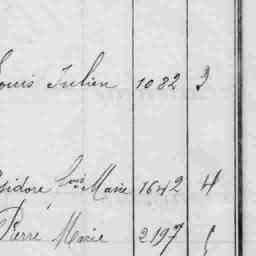 Louis Julien 1082 3
Isidore Louis Marie 1642 4
Pierre Marie 2197 5